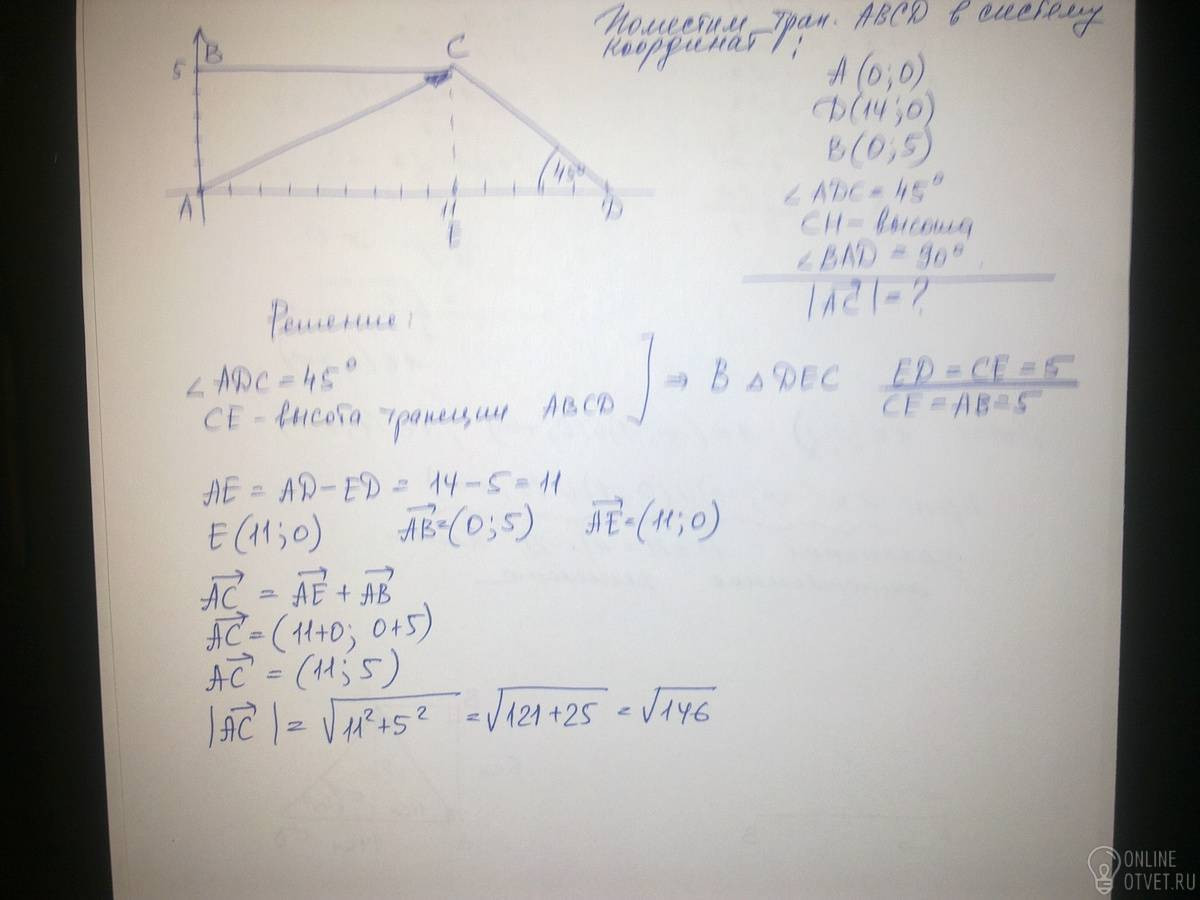 Поместим трап. ABCD в систему
координат:
B
5
C
A
11
E
45°
D
A(0;0)
D(14;0)
B(0;5)
∠ADC = 45°
CH - высота
∠BAD = 90°
|AC| = ?
Решение:
∠ADC = 45°
CE - высота трапеции ABCD ] ⇒ В △DEC ED = CE = 5
CE = AB = 5
AE = AD - ED = 14 - 5 = 11
E(11;0) AB = (0;5) AE = (11;0)
AC = AE + AB
AC = (11+0; 0+5)
AC = (11;5)
|AC| = √11²+5² = √121+25 = √146
ONLINE
OTVET.RU